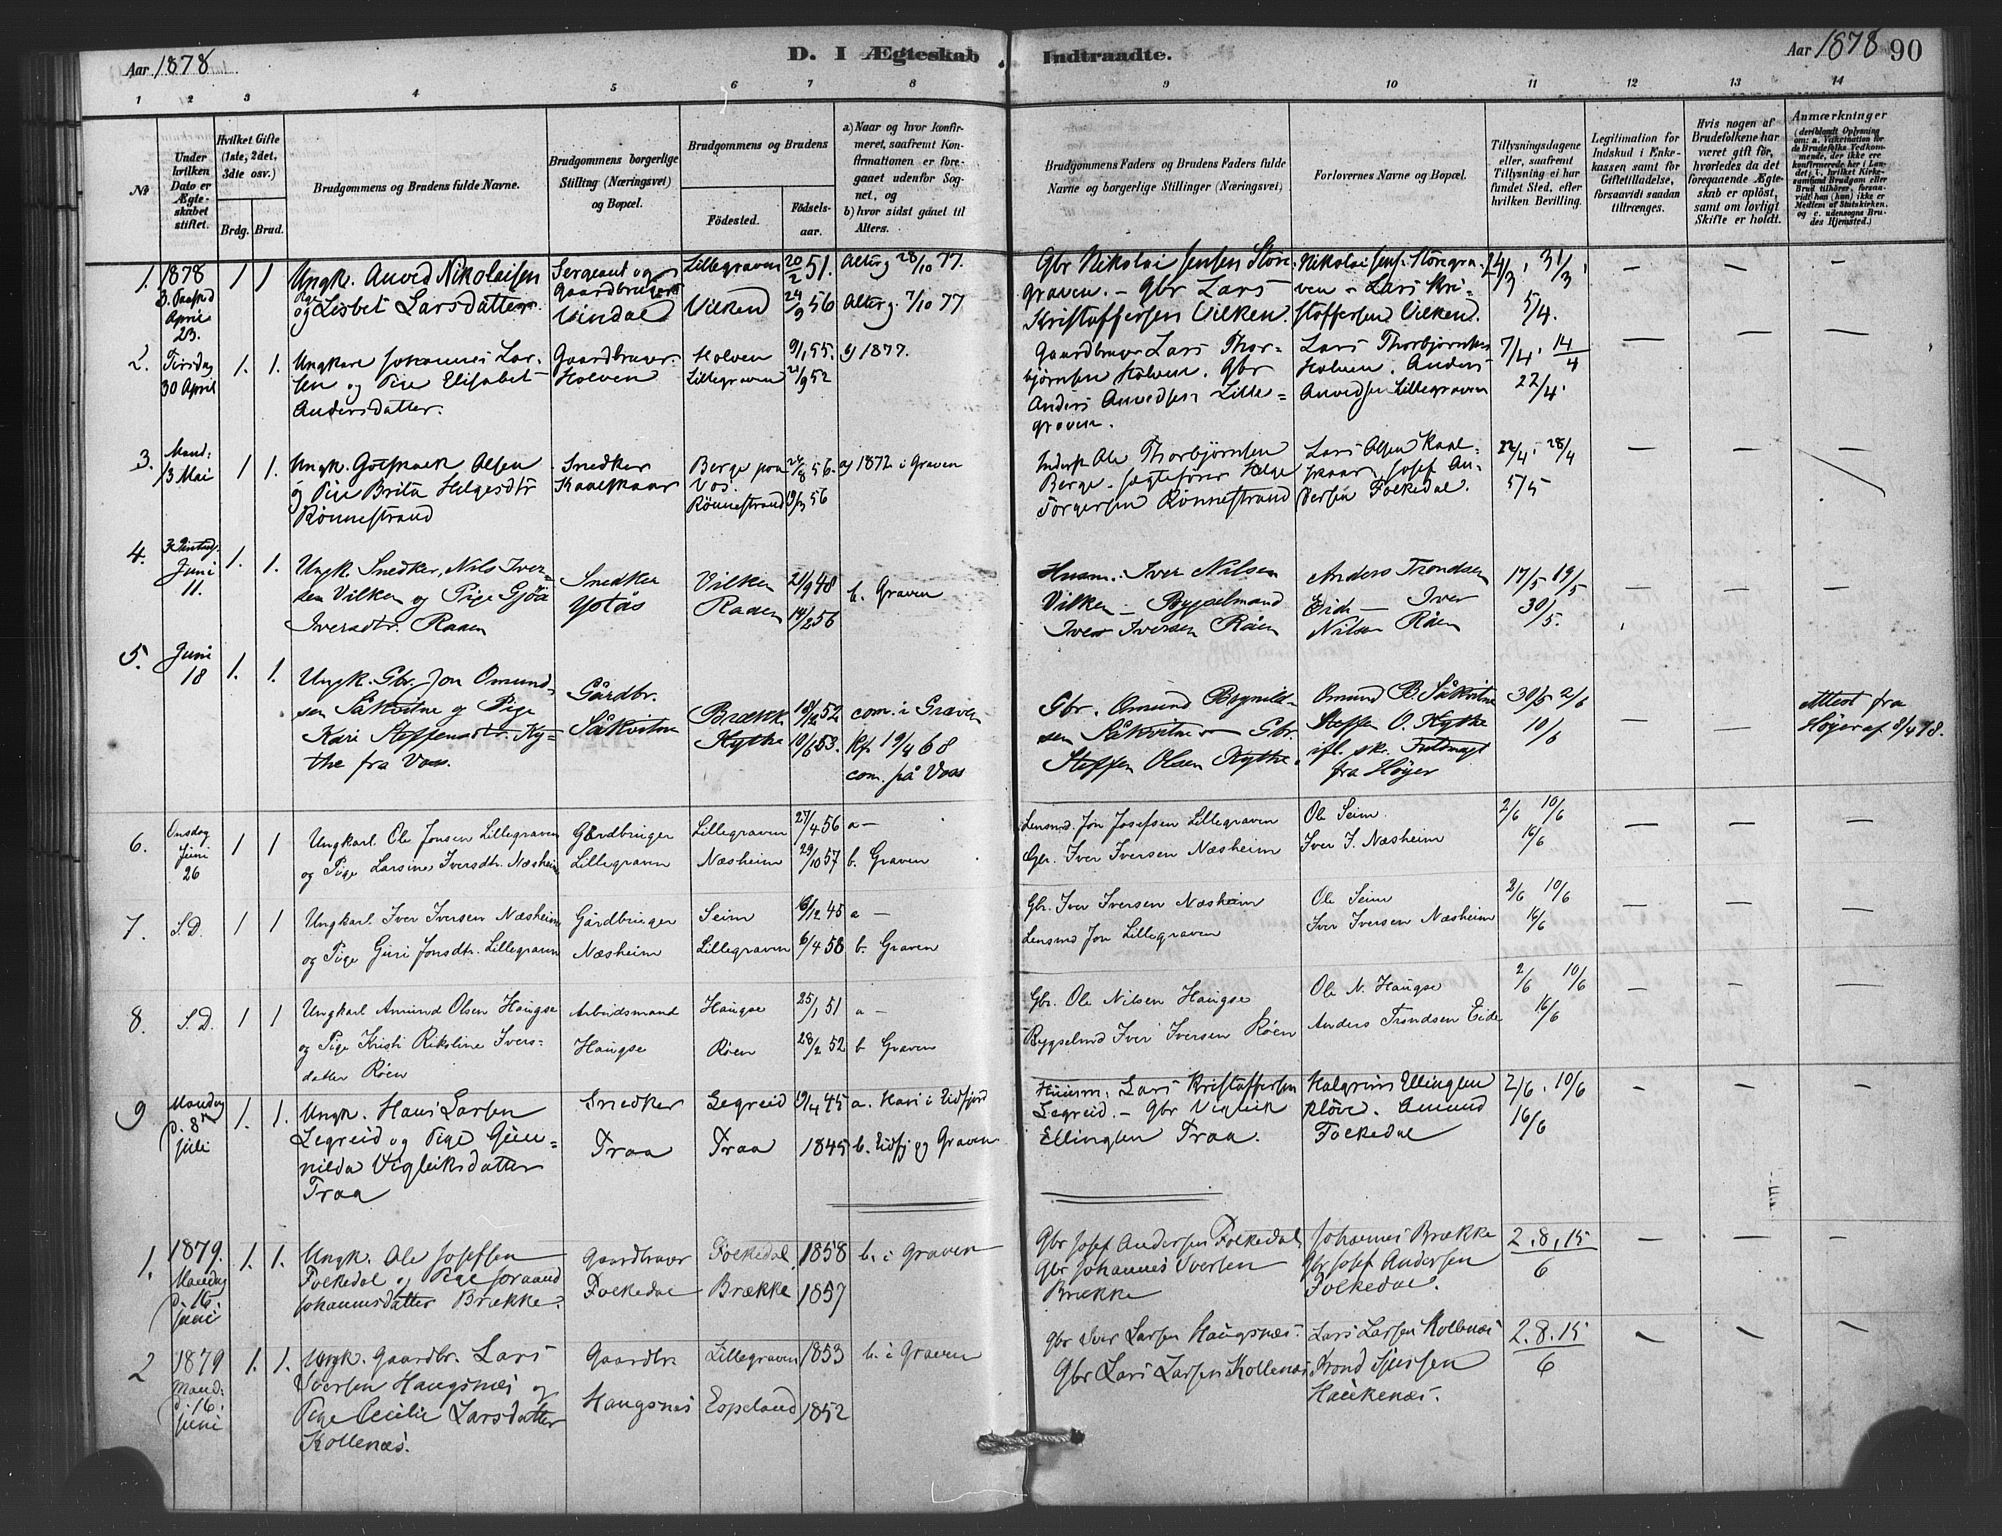 Aar 1878
D. I Ægteskab Indtraadte.
Aar 1878 90
1 2 3 4 5 6 7 8 9 10 11 12 13 14
No
Under hvilken Dato er Ægteskabet stiftet.
Hvilket Gifte (1ste, 2det, 3die osv.)
Brdg. Brud.
Brudgommens og Brudens fulde Navne.
Brudgommens borgerlige Stilling (Næringsvei) og Bopæl.
Brudgommens og Brudens
Fødested.
Fødselsaar.
a) Naar og hvor konfirmeret, saafremt Konfirmationen er foregaaet udenfor Sognet, og
b) hvor sidst gaaet til Alters.
Brudgommens Faders og Brudens Faders fulde Navne og borgerlige Stillinger (Næringsvei)
Forlovernes Navne og Bopæl.
Tillysningsdagene eller, saafremt Tillysning ei har fundet Sted, efter hvilken Bevilling.
Legitimation for Indskud i Enkekassen samt for Giftetilladelse, forsaavidt saadan tiltrænges.
Hvis nogen af Brudefolkene har været gift før, hvorledes da det foregaaende Ægteskab er opløst, samt om lovligt Skifte er holdt.
Anmærkninger
1. 1878 3. Paaskd April 23. 1 1
Ungk. Anved Nikolaisen
og Pige Lisbet Larsdatter.
Sergeant og Gaardbruger Vindal
Lillegraven 20/2 51. Altrg 28/10 77.
Vilken 24/9 56 Altrg. 7/10 77
Gbr Nikolai Jensen Store-
graven. – Gbr Lars
Kristoffersen Vilken.
Nikolai Jens. Storegra-
ven – Lars Kri-
stoffersen Vilken.
24/3, 31/3, 5/4. – – –
2. Tirsdag 30 April 1. 1.
Ungkar Johannes Lar-
sen og Pige Elisabet
Andersdatter.
Gaardbruger Holven
Holven 9/1 55. a) 1877.
Lillegraven 21/9 52
Gaardbruger Lars Thor-
bjørnsen Holven. Gbr
Anders Anvedsen Lille-
graven.
Lars Thorbjørnsen
Holven. Anders
Anvedsen Lillegraven
7/4, 14/4 22/4. – – –
3. Mand: 13 Mai 1 1.
Ungk. Gotskalk Olsen
og Pige Brita Helgesdtr
Rønnestrand
Snedker Kaalskaar
Berge paa Vos. 24/8 56. a) 1872 i Graven
Rønnestrand 19/3 56
Inderst Ole Thorbjørnsen
Berge. Helge
Torgersen Rønnestrand
Lars Olsen Kaal-
skaar, Josef An-
dersen Folkedal.
22/4, 28/4 5/5 – –
4. 3 Pintsd. Juni 11. 1. 1.
Ungk. Snedker, Nils Iver-
sen Vilken og Pige Gjøa
Iversdtr. Raaen
Snedker Ystås
Vilken 21/9 48 b. Graven
Raaen 14/2 56
Husm. Iver Nilsen
Vilken – Bygselmand
Iver Iversen Röen
Anders Trondsen
Eide – Iver
Nilsen Röen
17/5 19/5 30/5. – –
5. Juni 18 1. 1.
Ungk. Gbr. Jon Omund-
sen Såkvitne og Pige
Kari Steffensdtr. Ky-
the fra Voss.
Gårdbr. Såkvitne
Brækk 18/12 52 com. i Graven
Kythe 10/6 53. Kf. 19/4 68 com. på Voss
Gbr. Omund Brynild-
sen Såkvitne – Gbr.
Steffen Olsen Kythe.
Omund B. Såkvitne
Steffen O. Kythe
ifl. skr. Fuldmagt
fra Höyer
30/5 2/6 10/6 – –
Attest fra Höyer af 8/4 78.
6. Onsdag Juni 26 1 1
Ungkarl Ole Jonsen Lillegraven
og Pige Larsine Iversdtr. Næsheim
Gårdbruger Lillegraven
Lillegraven 27/4 56 a –
Næsheim 29/10 57 b. Graven
Lensmd. Jon Josefsen Lillegraven
Gbr. Iver Iversen Næsheim
Ole Seim
Iver I. Næsheim
2/6 10/6 16/6 – – –
7. S.D. 1 1
Ungkarl Iver Iversen Næsheim
og Pige Guri Jonsdtr. Lillegraven
Gårdbruger Næsheim
Seim 16/12 45 a –
Lillegraven 6/4 58 b. Graven
Gbr. Iver Iversen Næsheim
Lensmd Jon Lillegraven
Ole Seim
Iver Iversen Næsheim
2/6 10/6 16/6 – – –
8. S.D. 1 1
Ungkarl Amund Olsen Haugse
og Pige Kristi Rikoline Ivers-
datter Röen
Arbeidsmand Haugse
Haugse 25/1 51 a –
Röen 28/2 52 b Graven
Gbr. Ole Nilsen Haugse
Bygselmd Iver Iversen Röen
Ole N. Haugse
Anders Trondsen Eide
2/6 10/6 16/6 – – –
9 Mandag d. 8de Juli 1. 1.
Ungk. Hans Larsen
Legreid og Pige Gun-
nilda Vigleiksdatter
Traa
Snedker Traa
Legreid 19/4 45 a. Hari i Eidfjord
Traa 1845 b. Eidfj og Graven
Husm. Lars Kristoffersen
Legreid. – Gbr Vigleik
Ellingsen Traa.
Halgrim Ellingsen
Kløve. Amund
Folkedal
2/6, 10/6 16/6 – – –
1. 1879. Mandag d. 16. Juni 1. 1.
Ungk. Ole Josefsen
Folkedal og Pige Joraand
Johannesdatter Brække.
Gaardbruger Folkedal
Folkedal 1858 b. i Graven
Brække 1857
Gbr Josef Andersen Folkedal
Gbr Johannes Iversen
Brække
Johannes Brække
Gbr Josef Andersen
Folkedal.
2, 8, 15/6 – – –
2 1879 Mand: d. 16. Juni 1. 1.
Ungk. Gaardbr. Lars
Iversen Haugsnes og
Pige Cecilie Larsdatter
Kollenæs.
Gaardbr Haugsnæs
Lillegraven 1853 b. i Graven
Espeland 1852
Gbr Iver Larsen Haugsnæs.
Gbr Lars Larsen Kollenæs
Lars Larsen Kollenæs
Trond Sjursen
Haukenæs.
2. 8. 15/6 – – –